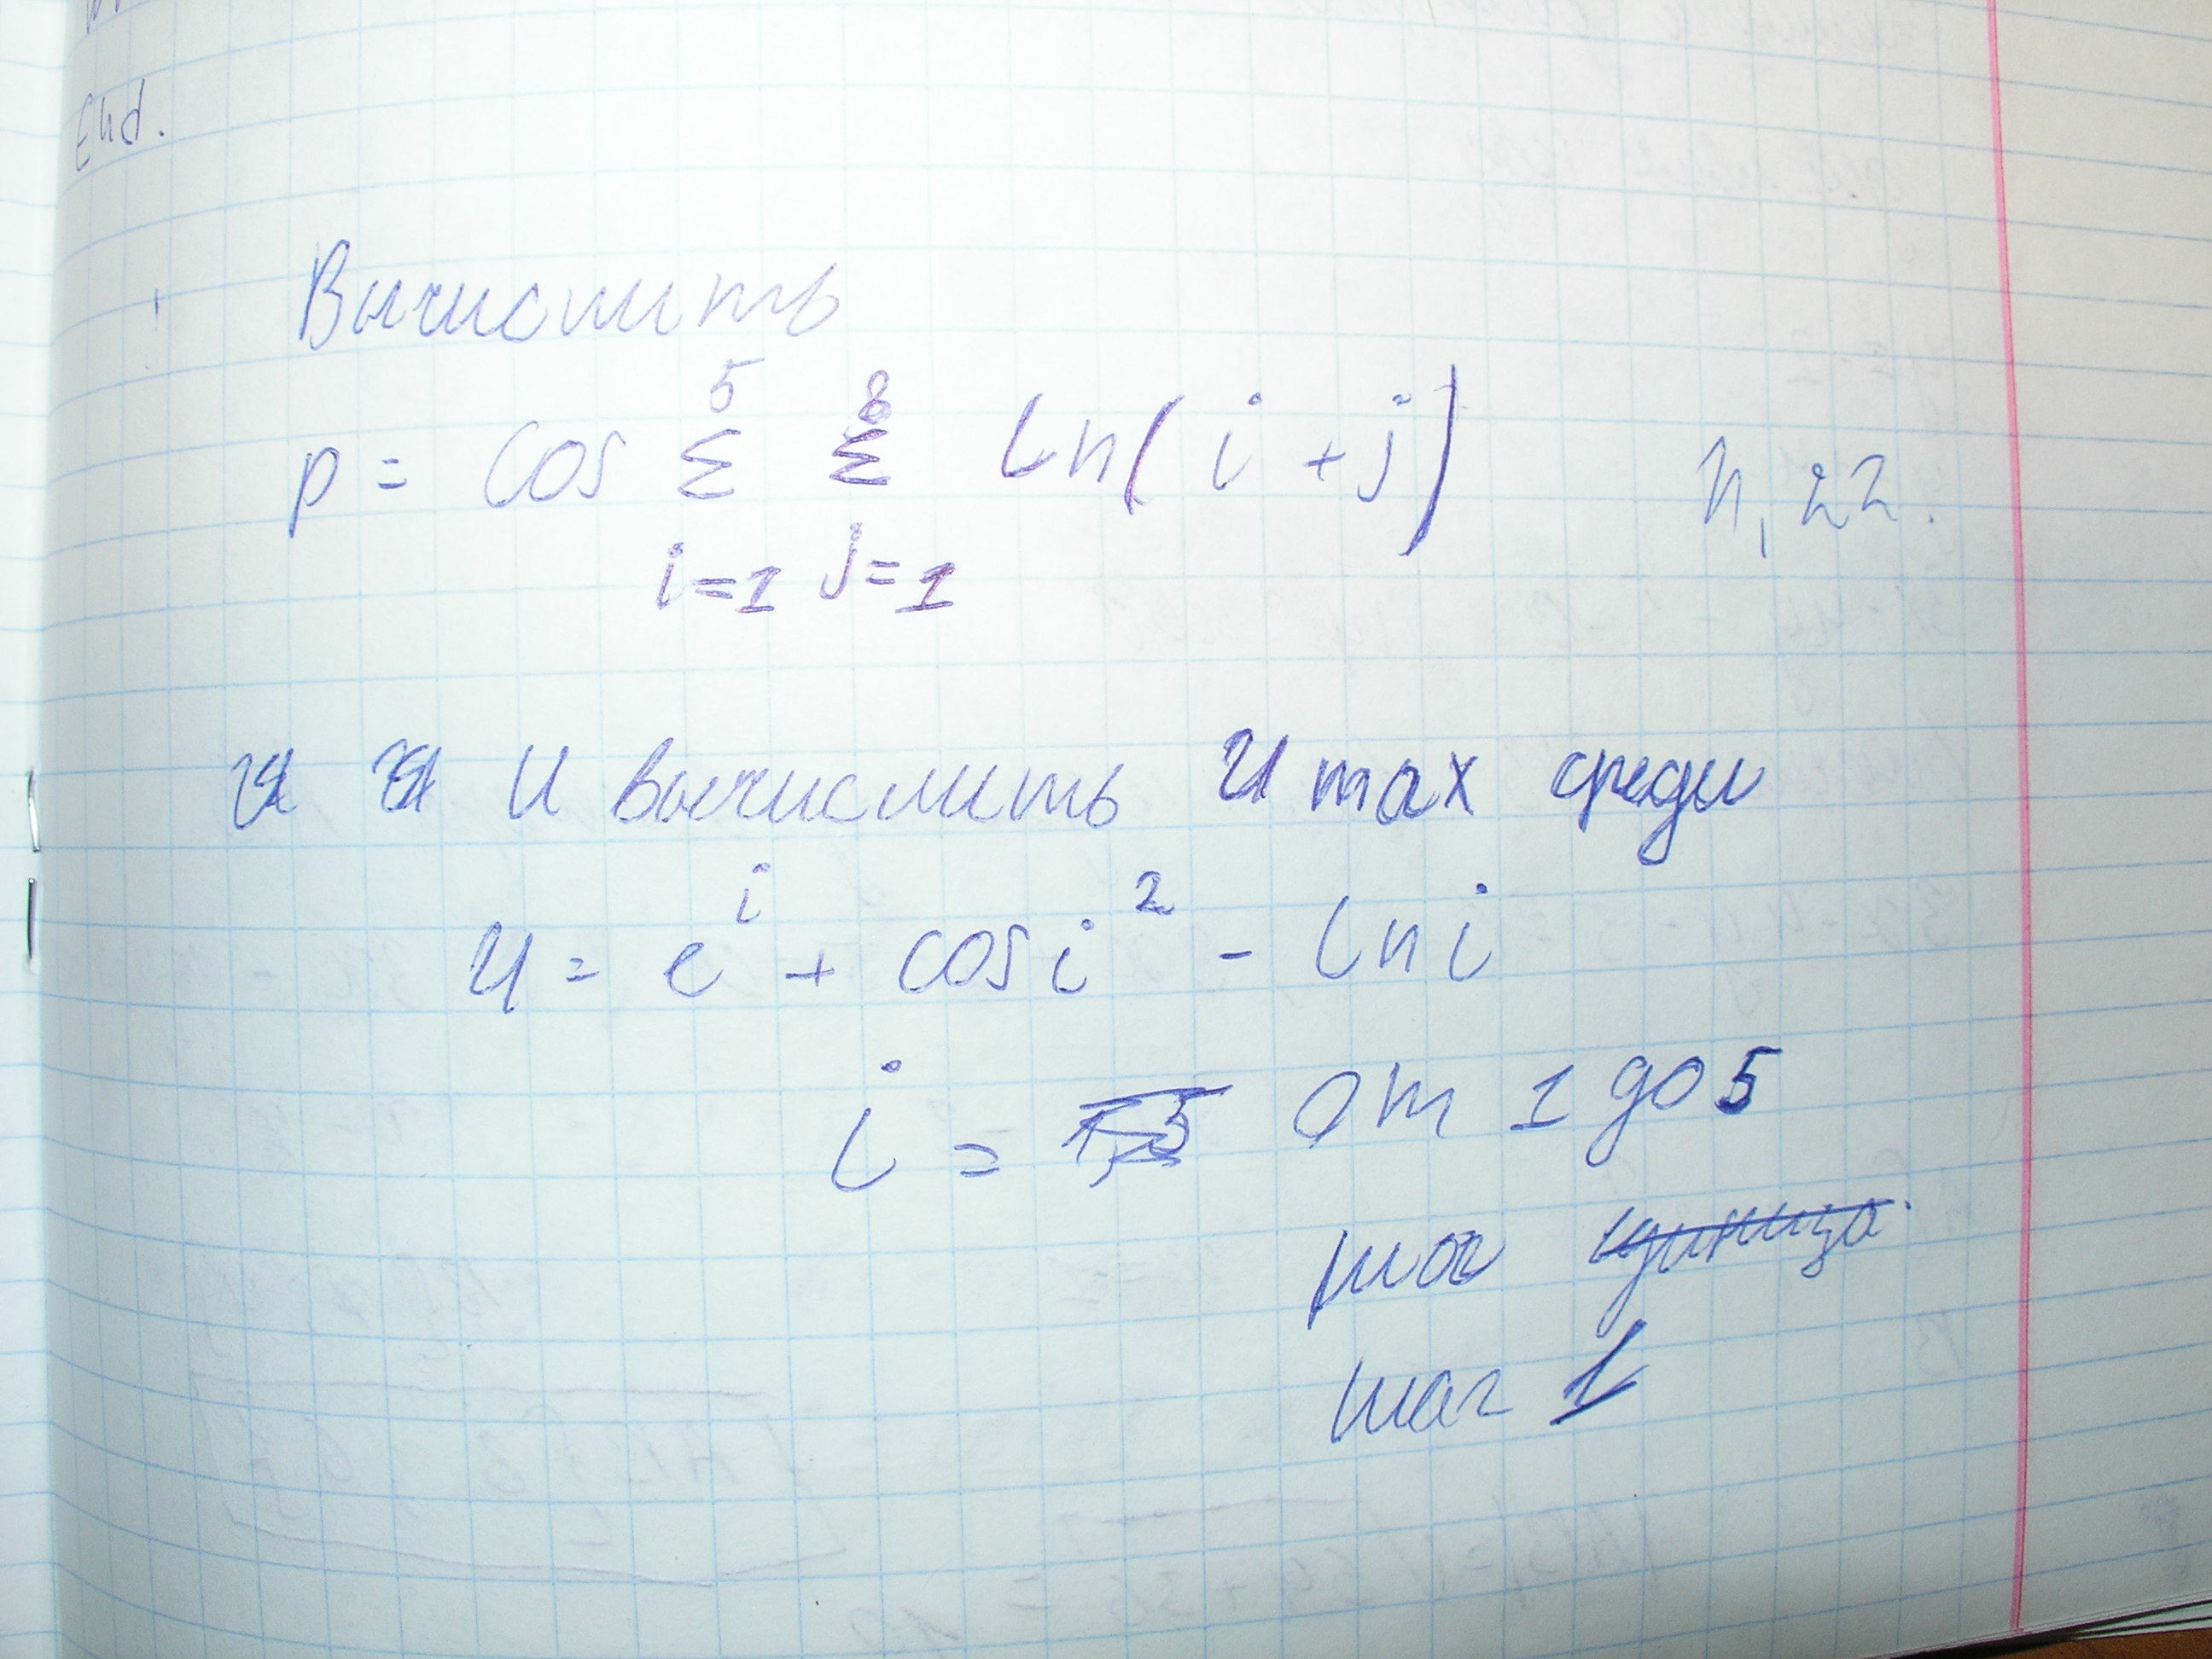 End.
Вычислить
5 8
p = cos Σ Σ ln(i+j) n, 22.
i=1 j=1
И вычислить U max среди
i 2
u = e + cos i - ln i
i = от 1 до 5
шаг единица.
шаг 1